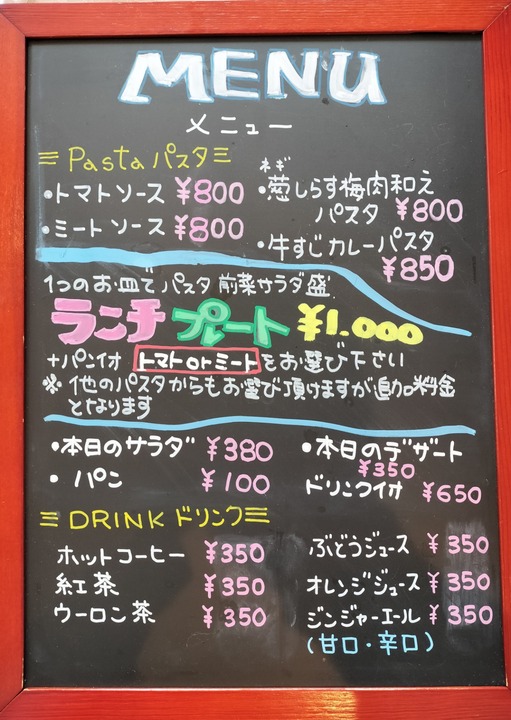 MENU
メニュー
三 Pasta パスタ 三
・トマトソース ¥800
・ミートソース ¥800
ネギ
・葱しらす梅肉和え
パスタ ¥800
・牛すじカレーパスタ
¥850
1つのお皿で パスタ 前菜サラダ盛
ランチ プレート ¥1.000
+パン付 トマトorミート をお選び下さい
※他のパスタからもお選び頂けますが追加料金
となります
・本日のサラダ ¥380
・パン ¥100
・本日のデザート
¥350
ドリンク付 ¥650
三 DRINK ドリンク 三
ホットコーヒー ¥350
紅茶 ¥350
ウーロン茶 ¥350
ぶどうジュース ¥350
オレンジジュース ¥350
ジンジャーエール ¥350
(甘口・辛口)